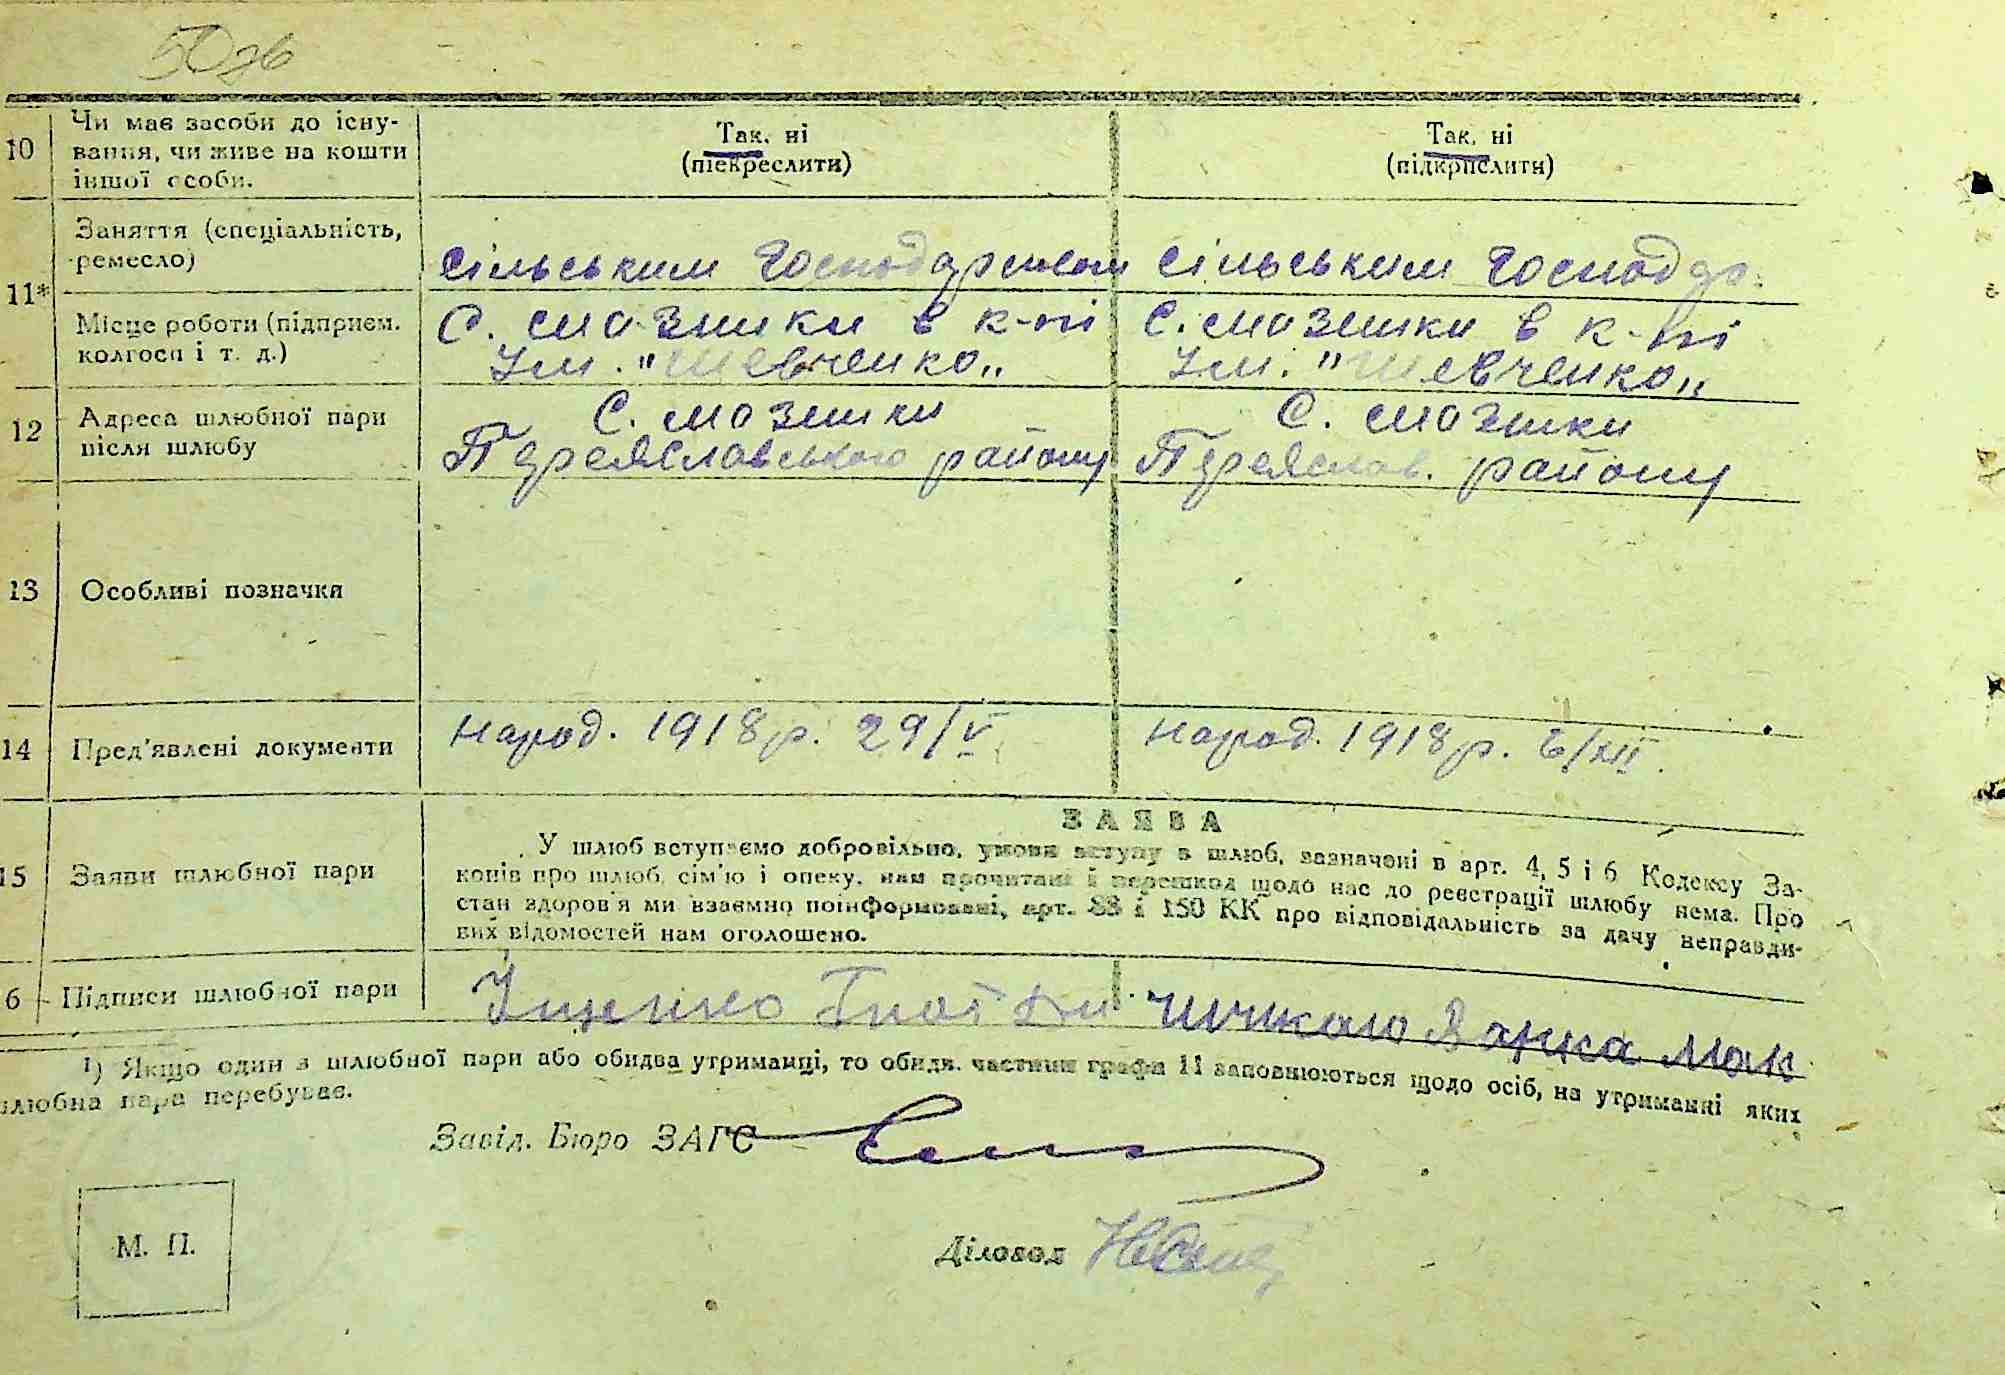 50зв
10 Чи має засоби до існу-
вання, чи живе на кошти
іншої особи.
Так, ні
(підкреслити)
Так, ні
(підкрислити)
11*
Заняття (спеціальність,
ремесло)
сільським господарством
сільським господар.
Місце роботи (підприєм.
колгосп і т. д.)
С. Мазінки в к-пі
Ім. "Шевченко„
С. Мазінки в к-пі
Ім. "Шевченко„
12 Адреса шлюбної пари
після шлюбу
С. Мазінки
Переяславського району
С. Мазінки
Переяслав. району
13 Особливі позначки
14 Пред'явлені документи
народ. 1918 р. 29/V
народ. 1918 р. 6/XII.
15 Заяви шлюбної пари
ЗАЯВА
У шлюб вступаємо добровільно, умови вступу в шлюб, зазначені в арт. 4, 5 і 6 Кодексу За-
конів про шлюб, сім'ю і опеку, нам прочитані і перешкод щодо нас до реєстрації шлюбу нема. Про
стан здоров'я ми взаємно поінформовані, арт. 88 і 150 КК про відповідальність за дачу неправди-
вих відомостей нам оголошено.
6 Підписи шлюбної пари
Іщенко Гнат
Мак
¹) Якщо один з шлюбної пари або обидва утриманці, то обидв. частини графи 11 заповнюються щодо осіб, на утриманні яких
шлюбна пара перебуває.
Завід. Бюро ЗАГС
М. П.
Діловод